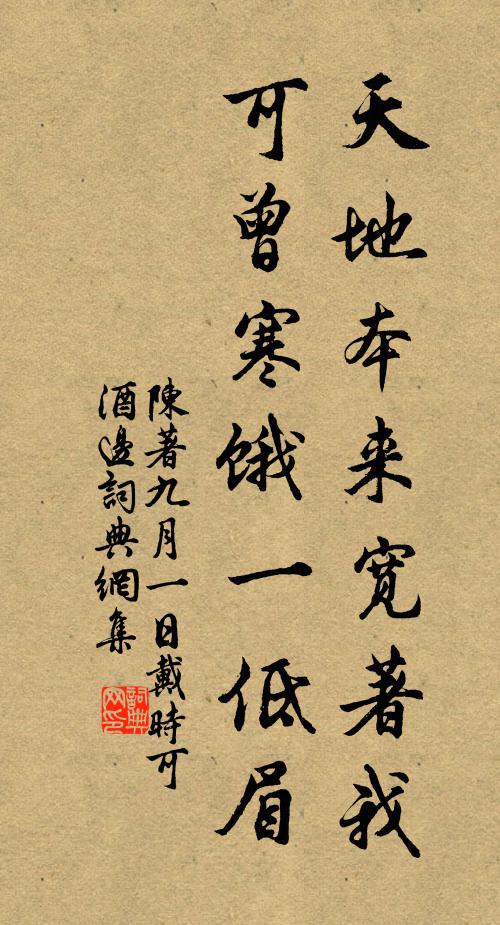 天地本来寛著我
可曾寒餓一低眉
陳著九月一日戴時可
酒邊詞典網集
詞典网印